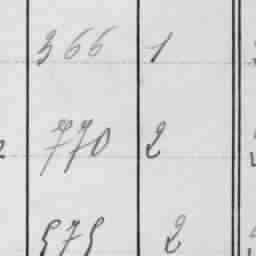 366 1
770 2
575 2